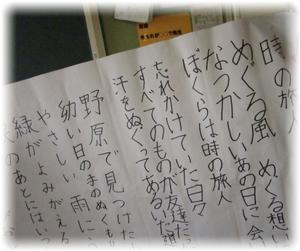 時の旅人
めぐる風 めぐる想い
なつかしいあの日に会
ぼくらは時の旅人
忘れかけていた日々
すべてのものが友達だ
汗をぬぐってあるいた
野原で見つけた
幼い日のまのぬくもり
やさしい雨に
緑がよみがえる
のあとにはいつ